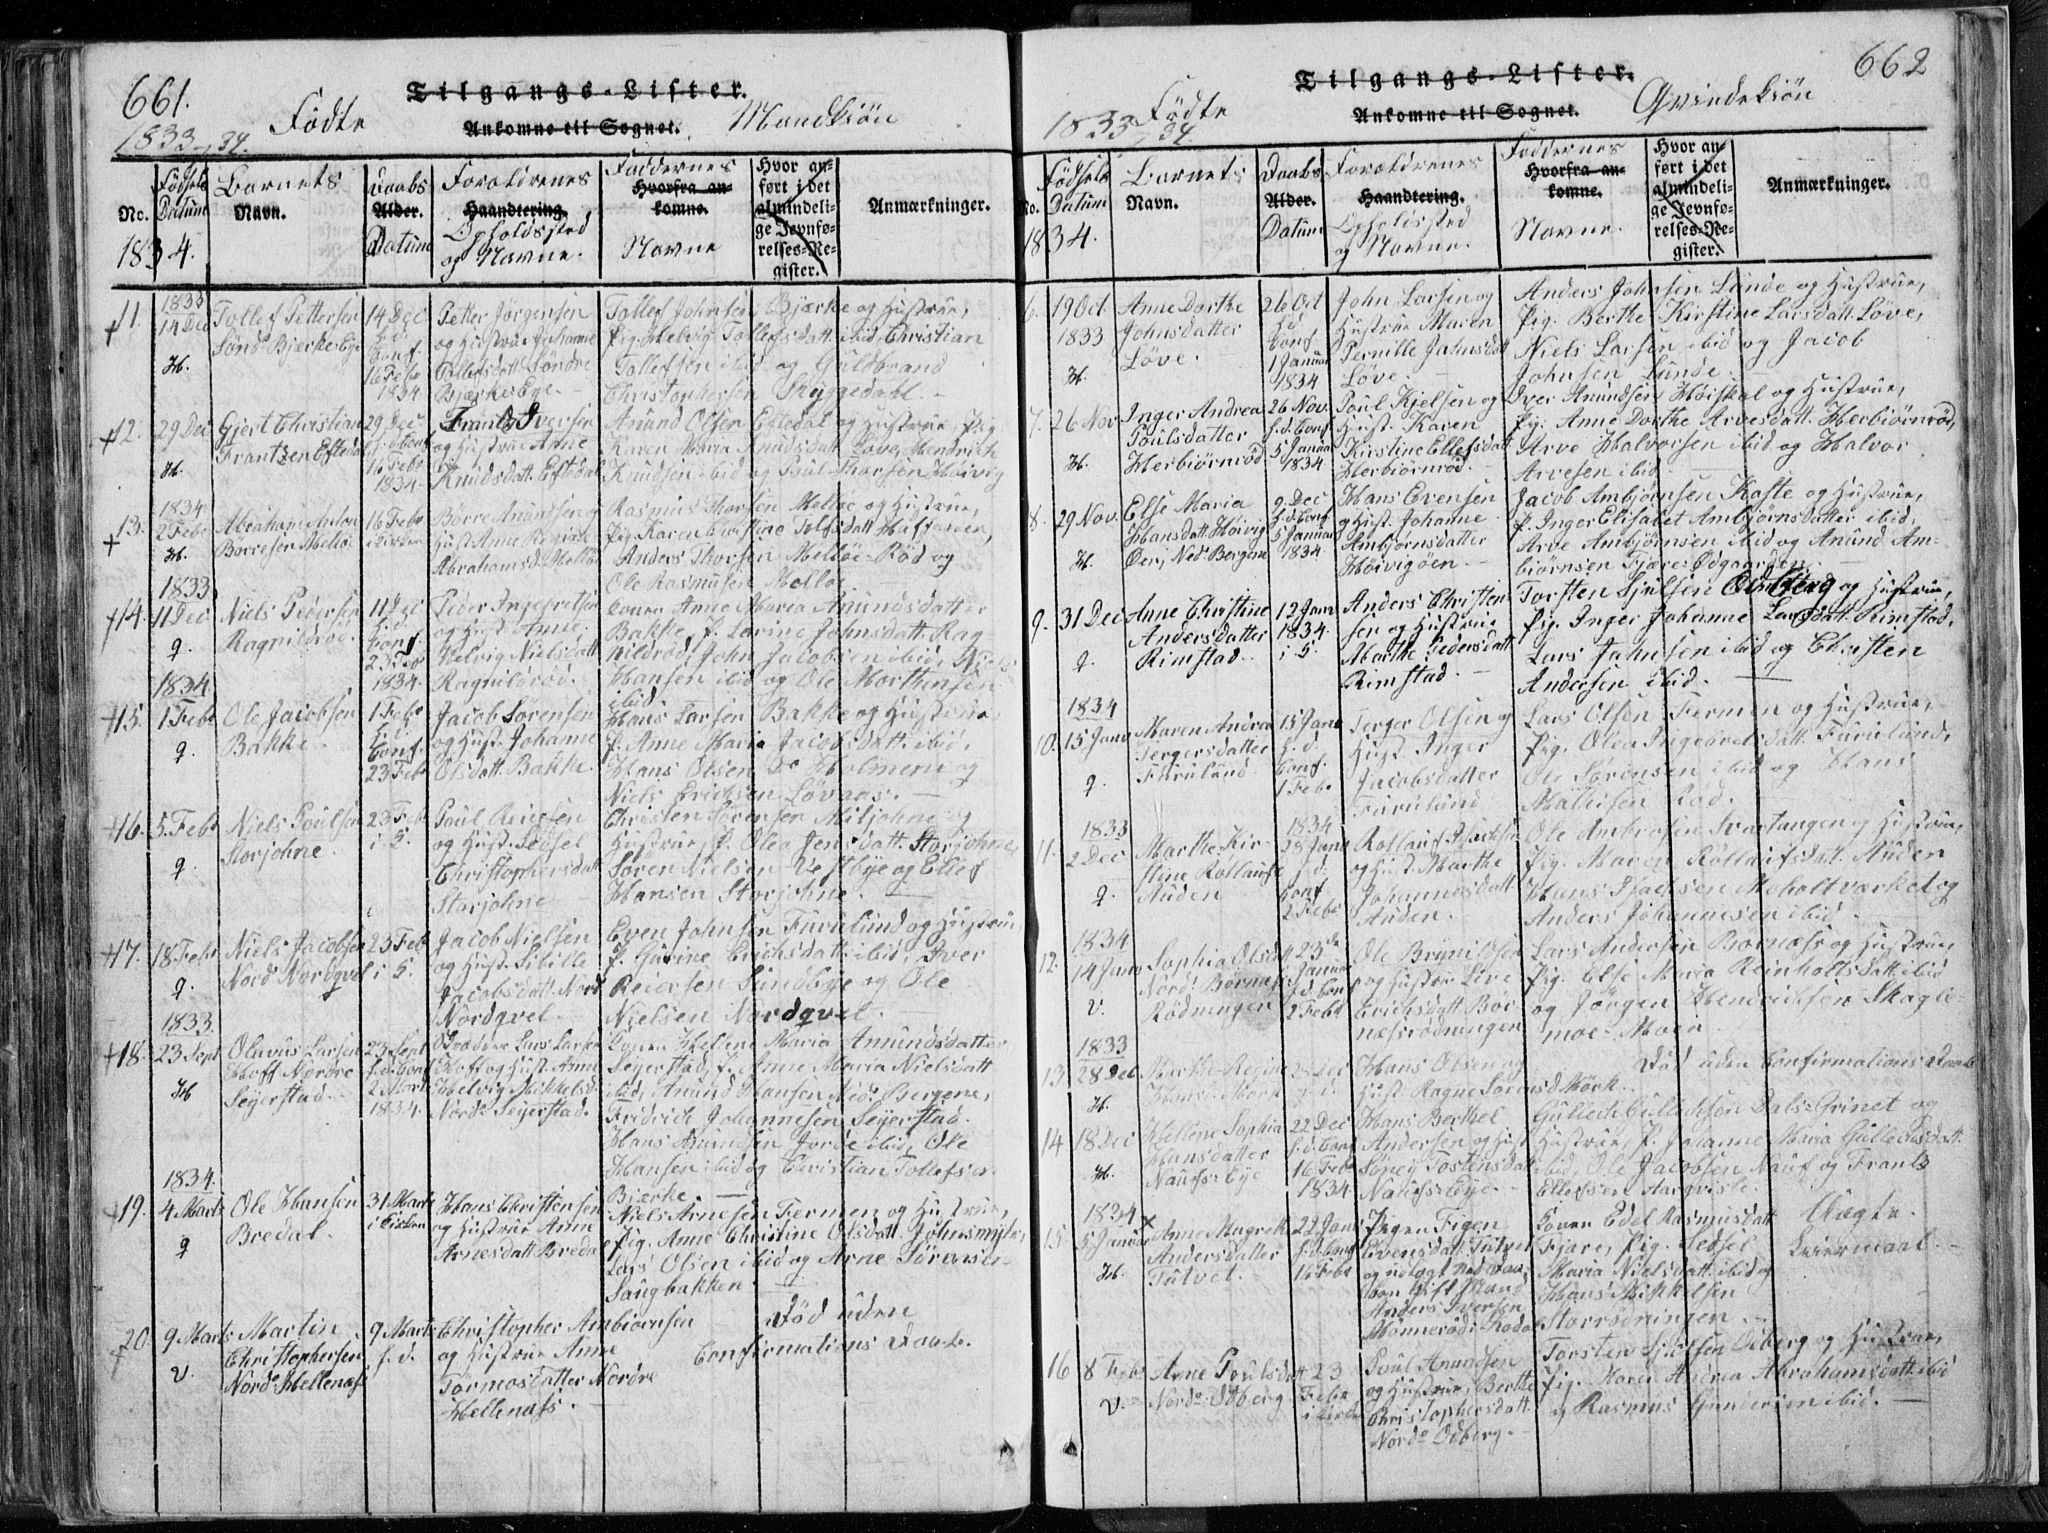 661.
Tilgangs-Lister.
1833-34.
Födte
Ankomne til Sognet.
Mandkiön
Födsels Datum
Barnets
Daabs
Foroldrenes
Faddernes
Hvorfra ankomne.
Hvor anført i det almindelige Jevnførelses-Register.
No.
Navn.
Alder.
Haandtering.
Anmærkninger.
1834.
Datum
Opholdssted og Navne.
Navne
11.
1833
14 Dec
H.
Tollef Pettersen
Sönd. Bjerke Eje
14 Dec
h.d.
Conf.
16 Febr
1834
Petter Jörgensen
og Hustrue Johanne
Tollefsdatt. Söndre
Bjærke Eye.
Tollef Johnsen Bjerke og Hustrue,
Pig. Helvig Tollefsdatt. ibid, Christian
Tollefsen ibid og Guldbrand
Christophersen Skyggedahl.
12.
29 Dec
H.
Gjert Christian
Frantzen Eftedal
29 Dec
h.d. Conf
16 Febr
1834.
Frants Iversen
og Hustrue Anne
Knudsdatt. Eftedal
Anund Olsen Eftedal og Hustrue, Pig
Karen Maria Knudsdatt. Löve, Hendrich
Knudsen ibid og Poul Thorsen Höivig
13.
1834
2 Febr
H.
Abraham Anton
Börresen Melløe
16 Febr
i Kirken
Börre Anundsen og
Hust. Anne
Abrahamsd. Melløe
Rasmus Thorsen Melløe og Hustrue,
Pig. Karen
Anders Thorsen Melløe-Röd og
Ole Rasmusen Melløe.
14.
1833
11 Dec
q.
Niels Pedersen
Ragnildröd.
11 Dec
h.d.
Conf.
23 Feb
1834.
Peder Ingebretsen
og Hust. Anne
Helvig Nielsdatt
Ragnildröd.
Konen Anne Maria Anundsdatter
Bakke, P. Larine Johnsdatt. Rag-
nildröd, John Jacobsen ibid, Niels
Hansen ibid og Ole Marthinsen
ibid
15.
1834.
1 Febr
q.
Ole Jacobsen
Bakke.
1 Febr
h.d.
Conf.
23 Febr
Jacob Sorensen
og Hust. Johanne
Olsdatt. Bakke.
Hans Larsen Bakke og Hustrue,
P. Anne Maria Jacobsdatt. ibid,
Hans Olsen Do Holmene og
Niels Erichsen Lövaas.
16.
5. Febr
q.
Niels Poulsen
Storjohne.
23 Feb
i S.
Poul Reiersen
og Hust. Sedsel
Christophersdatt
Storjohne
Christen Sörensen Miljohne og
Hustrue, P. Olea Jensdatt. Storjohne,
Sören Nielsen Vestbye og Ellef
Hansen Storjohne.
17.
18 Febr
q.
Niels Jacobsen
Nord Nordqvel
23 Feb
i S.
Jacob Nielsen
og Hust. Sibille
Jacobsdatt. Nord
Nordqvel.
Even Johnsen Furulund og Hustrue,
P. Gurine Erichsdatt. ibid, Iver
Reiersen Sundbye og Ole
Nielsen Nordqvel.
18.
1833.
23 Sept
H
Olavus Larsen
Hoff Nordre
Seyerstad.
23 Sept
h.d. Conf
2 Mart
1834.
Lars Larsen
Hoff og Hust. Anne
Helvig Mikkelsd.
Nord. Seyerstad.
Konen Hellene Maria Anundsdatter
Seyerstad, P. Anne Maria Nielsdatt
ibid, Anund Hansen Ned. Bergene,
Fridrich Johannesen Seyerstad.
Hans Anundsen Jorde ibid, Ole
Hansen ibid og Christian Tollefsen
Bjerke.
19.
1834.
4 Marts
q
Ole Hansen
Bredal.
31 Marts
i Kirken
Hans Christensen
og Hustrue Anne
Arnesdatt Bredal
Niels Arnesen Fermen og Hustrue,
Pig. Anne Christine Olsdatt. Johnsmyhr,
Lars Olsen ibid og Arne Sörensen
Saugbakken
20.
9 Marts
v.
Martin
Christophersen
Nord. Hellenæs
9 Marts
h.d.
Christopher Ambiörnsen
og Hustrue Anne
Tormosdatter Nordre
Hellenæss.
Död uden
Confirmations Daab.
662
Tilgangs-Lister.
1833-34.
Födte
Ankomne til Sognet.
Qvindekiön
Födsels Datum
Barnets
Daabs
Foroldrenes
Faddernes
Hvorfra ankomne.
Hvor anført i det almindelige Jevnførelses-Register.
No.
Navn.
Alder.
Haandtering.
Anmærkninger.
1834.
Datum
Opholdssted og Navne.
Navne.
6.
19 Oct
1833
H.
Anne Dorthe
Johnsdatter
Löve.
26 Oct
h.d.
Conf
1 Januar
1834
John Larsen og
Hustrue Maren
Pernille Jahnsdatt
Löve.
Anders Johnsen Lunde og Hustrue,
Pig. Berthe Kirstine Larsdatt. Löve,
Niels Larsen ibid og Jacob
Johnsen Lunde.
7.
26 Nov
H.
Inger Andrea
Poulsdatter
Herbiörnröd
26 Nov.
h.d. Conf
5 Januar
1834
Poul Kjelsen og
Hust. Karen
Kirstine Ellefsdatt
Herbiörnröd.
Iver Anundsen Höiskal og Hustrue,
Pig. Anne Dorthe Arvesdatt. Herbiörnröd,
Arve Halvorsen ibid og Halvor
Arvesen ibid.
8.
29 Nov.
H.
Else Maria
Hansdatt. Höivig
Öen, Ned. Bergene
9 Dec
h.d. Conf
5 Januar
1834.
Hans Evensen
og Hust. Johanne
Ambjörnsdatter
Höivigöen.
Jacob Ambjörnsen Kafte og Hustrue,
P. Inger Elisabet Ambjörnsdatter ibid,
Arve Ambjörnsen ibid og Anund Am-
biörnsen Fjære-Ödgaarden.
9.
31 Dec
q.
Anne Christine
Andersdatter
Rimstad.
12 Janr
1834.
i S.
Anders Christen-
sen og Hustrue
Marthe Pedersdatt
Rimstad.
Torsten Sjulsen Odberg og Hustrue,
Pig. Inger Johanne Larsdatt. Rimstad,
Lars Jahnsen ibid og Christen
Andersen ibid.
10.
1834
15 Janr
q.
Maren Andrea
Tergersdatter
Furulund.
15 Janr
h.d.
Conf.
1 Febr
Terger Olsen og
Hust. Inger
Jacobsdatter
Furulund
Lars Olsen Fermen og Hustrue,
Pig. Olea Ingebretsdatt. Furulund,
Ole Sörensen ibid og Hans
Mathisen Röd.
11.
1833
2 Dec
q.
Marthe Kir-
stine Röllaufs
Auden
1834
25 Janr
h.d.
Conf
2 Febr
Rollauf Isachsen
og Hust. Marthe
Johannesdatt
Auden.
Ole Ambrosen Svartangen og Hustrue,
Pig. Maren Röllaufsdatt. Auden
Hans Isachsen Moholtværket og
Anders Johannesen ibid
12.
1834
14 Janr
v.
Sophia Olsd.
Nord. Börnæss-
Rödningen
23de
Januar
h.d. Conf
2 Febr
Ole Brynilsen
og Hustrue Live
Erichsdatt. Bor-
næsrödningen
Lars Andersen Bornæss og Hustrue,
Pig. Else Maria Reinholtsdatt. ibid
og Jörgen Hendrichsen Skagle-
moe-Moen.
13.
1833
28 Dec
H.
Marthe Regine
Hansd. Mörk
28 Dec
Hans Olsen og
Hust. Ragne Sorensd Mörk.
Död uden Confirmations Daab
14
18 Dec
H.
Hellene Sophia
Hansdatter
Naufs-Eye
22 Dec
h.d. Conf
16 Febr
1834
Hans Berthel
Andersen og Hust
Torstensdatt
Naufs-Eye.
Gullech Gullichsen Dals-Grinet og
Hustrue, P. Johanne Maria Gullechsdatt.
ibid, Ole Jacobsen Nauf og Frantz
Ellefsen Aarqvisle.
15
1834
5 Januar
H.
Anne Magrethe
Andersdatter
Tutvet.
22 Janr
h.d. Conf
16 Febr
Pigen Figen
Evensdatt. Tutvet
og udlagt ved Daa-
ben Gift Mand
Anders Iversen
Mönneröd
Konen Edel Rasmusdatt
Fjære, Pig. Sedsel
Maria Nielsdatt. ibid og
Hans Mikkelsen
Storrödningen
Uægte.
Leiermaal.
16
8 Febr
v.
Anne Poulsdatt
Nord. Odberg
23
Febr
i Kirken
Poul Anundsen
og Hustrue Berthe
Christophersdatt.
Nord. Odberg.
Torsten Sjulsen Odberg og Hustrue,
Pig. Maren Andrea Abrahamsdatt. ibid
og Rasmus Gundersen ibid.